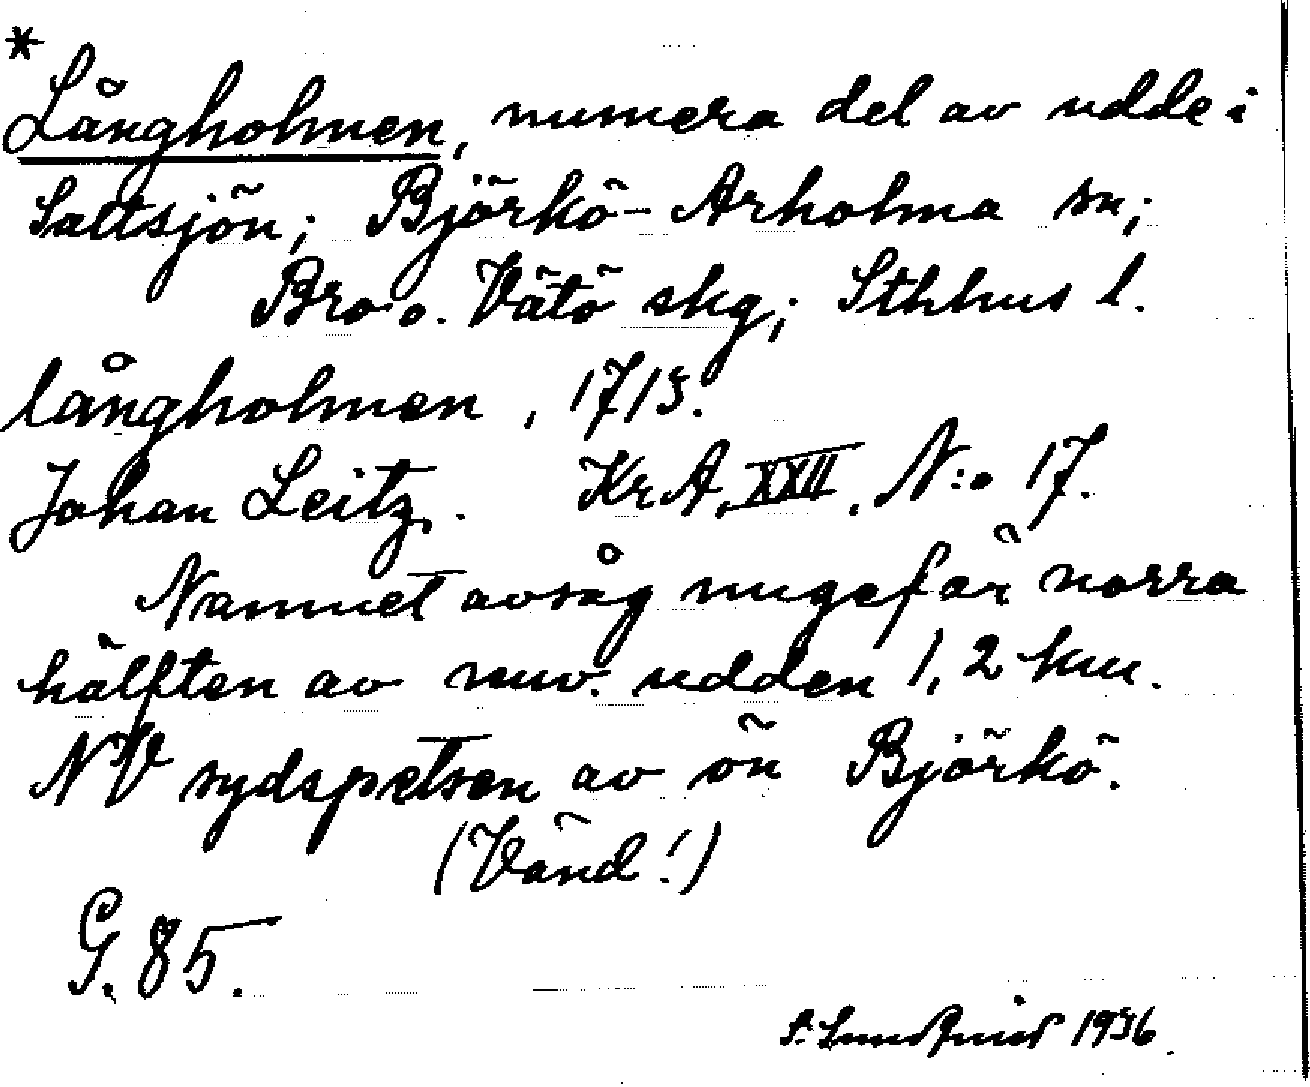 * Långholmen, numera del av udde i
Saltsjön; Björkö-Arholma sn;
Bro o. Vätö skg; Sthlms l.
långholmen, 1715.
Johan Leitz. KrA. XXII. N:o 17.
Namnet avsåg ungefär norra
hälften av nuv. udden 1,2 km.
NV sydspetsen av ön Björkö.
(Vänd!)
G. 85.
S. 1936.